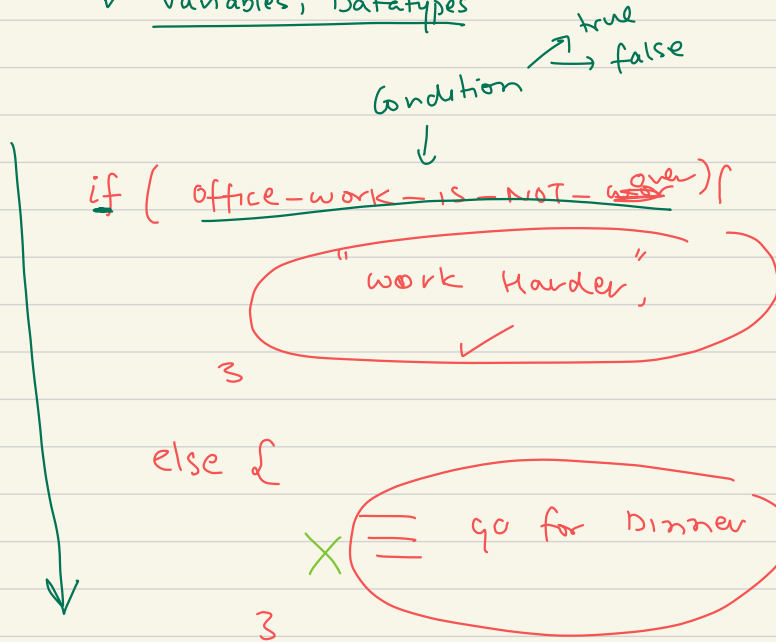 Variables, Datatypes
true
false
Condition
if ( office-work-is-NOT-over ) {
"work Harder";
}
else {
go for Dinner
}